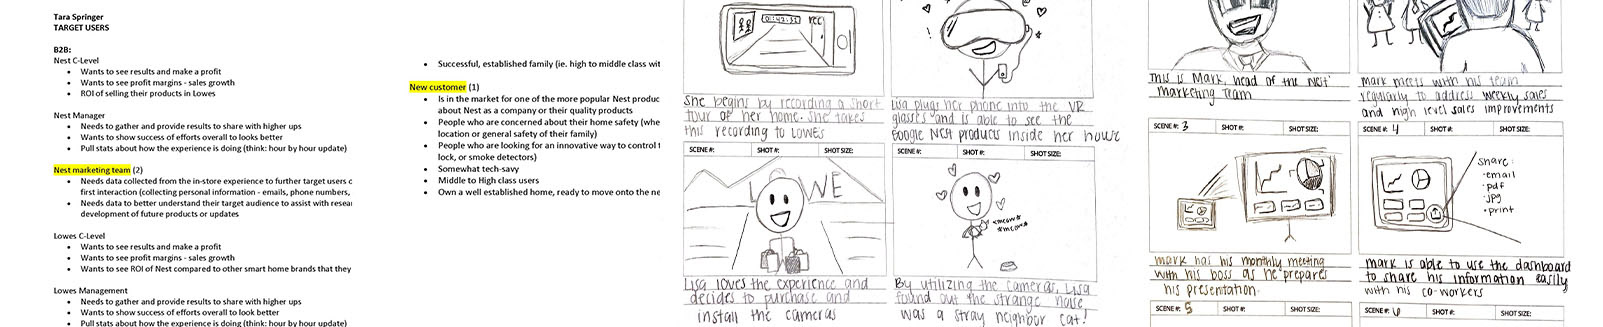 Tara Springer
TARGET USERS
B2B:
Nest C-Level
• Wants to see results and make a profit
• Wants to see profit margins - sales growth
• ROI of selling their products in Lowes
Nest Manager
• Needs to gather and provide results to share with higher ups
• Wants to show success of efforts overall to looks better
• Pull stats about how the experience is doing (think: hour by hour update)
Nest marketing team (2)
• Needs data collected from the in-store experience to further target users c
first interaction (collecting personal information - emails, phone numbers,
• Needs data to better understand their target audience to assist with resear
development of future products or updates
Lowes C-Level
• Wants to see results and make a profit
• Wants to see profit margins - sales growth
• Wants to see ROI of Nest compared to other smart home brands that they
Lowes Management
• Needs to gather and provide results to share with higher ups
• Wants to show success of efforts overall to look better
• Pull stats about how the experience is doing (think: hour by hour update)
• Successful, established family (ie. high to middle class wit
New customer (1)
• Is in the market for one of the more popular Nest produc
about Nest as a company or their quality products
• People who are concerned about their home safety (whe
location or general safety of their family)
• People who are looking for an innovative way to control t
lock, or smoke detectors)
• Somewhat tech-savy
• Middle to High class users
• Own a well established home, ready to move onto the ne
REC
She begins by recording a short
tour of her home. She takes
this recording to LOWES
Lisa plugs her phone into the VR
glasses and is able to see the
Google Nest products inside her house
SCENE #: SHOT #: SHOT SIZE:
SCENE #: SHOT #: SHOT SIZE:
LOWE
*meow*
*meow*
Lisa loves the experience and
decides to purchase and
install the cameras
By utilizing the cameras, Lisa
found out the strange noise
was a stray neighbor cat!
This is Mark, head of the Nest
marketing Team
mark meets with his team
regularly to address weekly sales
and high level sales improvements
SCENE #: 3 SHOT #: SHOT SIZE:
SCENE #: 4 SHOT #: SHOT SIZE:
Share:
-email
-pdf
-jpg
-print
mark has his monthly meeting
with his boss as he prepares
his presentation.
mark is able to use the dashboard
to share his information easily
with his co-workers
SCENE #: 5 SHOT #: SHOT SIZE:
SCENE #: 6 SHOT #: SHOT SIZE: